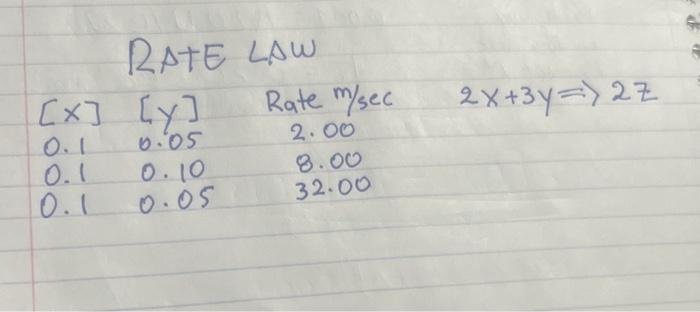 RATE LAW
[X] [Y] Rate m/sec 2X+3Y=>2Z
0.1 0.05 2.00
0.1 0.10 8.00
0.1 0.05 32.00